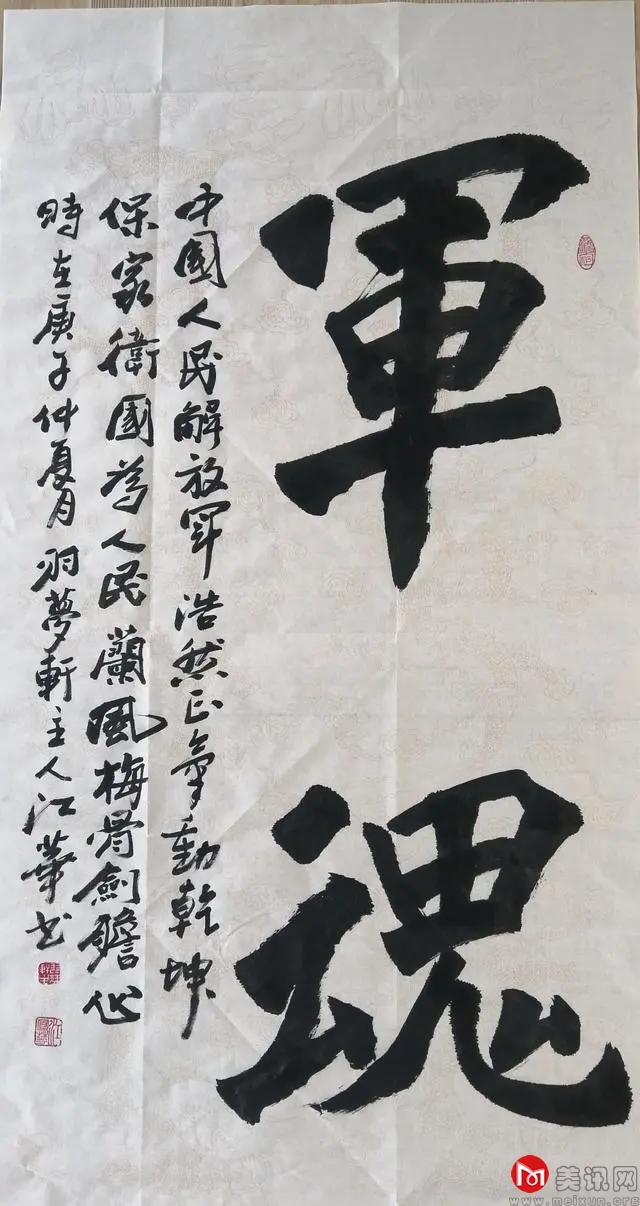 軍魂
中國人民解放軍浩然正氣動乾坤
保家衛國為人民蘭風梅骨劍膽心
時在庚子仲夏月羽夢軒主人江華書
美讯网
www.meixun.org